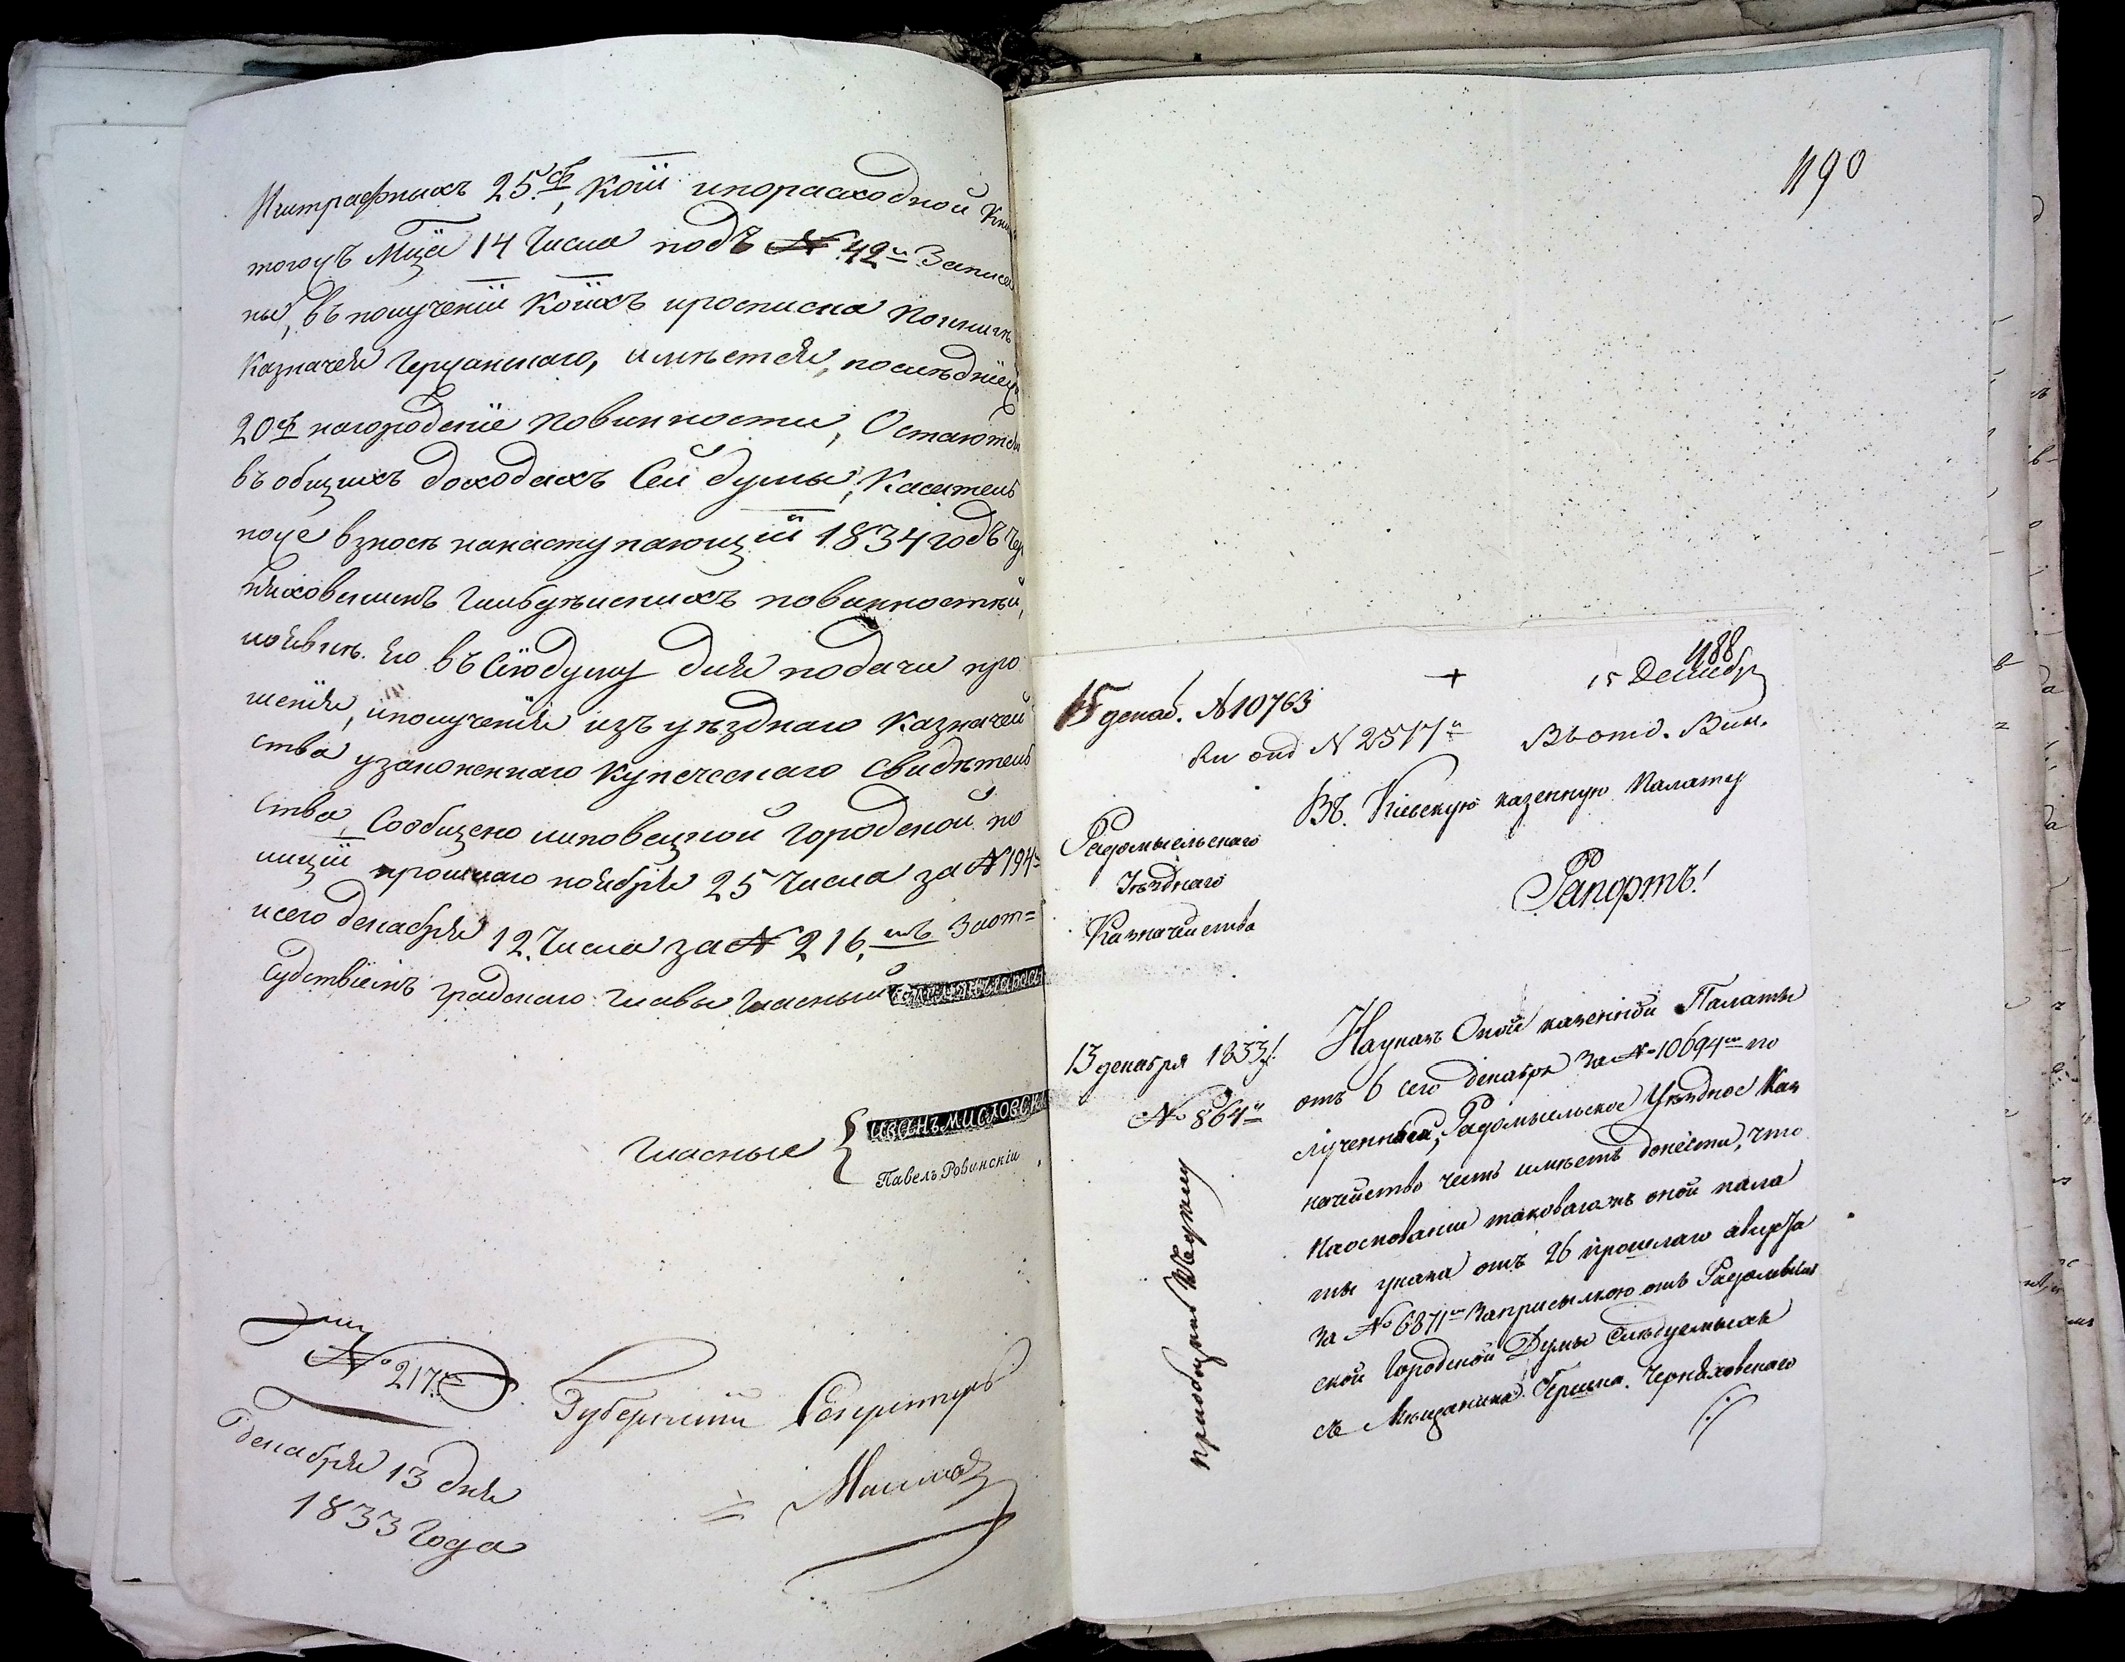 Штрафныхъ 25. ср, кои и по расходной кни
тогожъ М-ца 14 числа подъ № 42м Записа
ны, въ полученіи коихъ и росписка
Казначея Черчанскаго, имѣется, последніежъ
20 ср нагородскіе повинности, Остаются
въ общихъ доходахъ Сей думы, Касатель
ноже взноса на наступающій 1834 годъ Чер
няховскимъ Гильдейскихъ повинностей,
и о явкѣ его въ Сію думу для подачи про
шенія, и полученія изъ уѣзднаго казначей
ства узаконеннаго купеческаго Свидѣтель
ства, Сообщено липовецкой городской по
лиціи прошлаго ноября 25 числа за № 194м
и сего декабря 12. Числа за № 216. мъ За от=
судствіемъ градскаго главы Гласный
Гласные { иванъ мисловскі
Павелъ Ровинскій
№ 217й
декабря 13 дня
1833 Года
Губернскій Секретарь
490
488
15 декаб. № 10763
15 Декабр
№ 2577й
Въ отд. Вин.
Въ. Кіевскую казенную Палату
Радомысльскаго
Уѣзднаго
Казначейства
Рапортъ!
13 декабря 1833 г.
№ 864й
На указъ Оной казенной Палаты
отъ 6 сего декабря За № 10694м по
лученный, Радомысльское Уѣздное Каз
начейство честь имѣетъ донести, что
на основаніи таковагожъ оной пала
ты указа отъ 26 прошлаго августа
за № 6871м За присылкою отъ Радомысль
ской Городской Думы Слѣдуемыхъ
съ Мѣщанина Гершка Черняховскаго